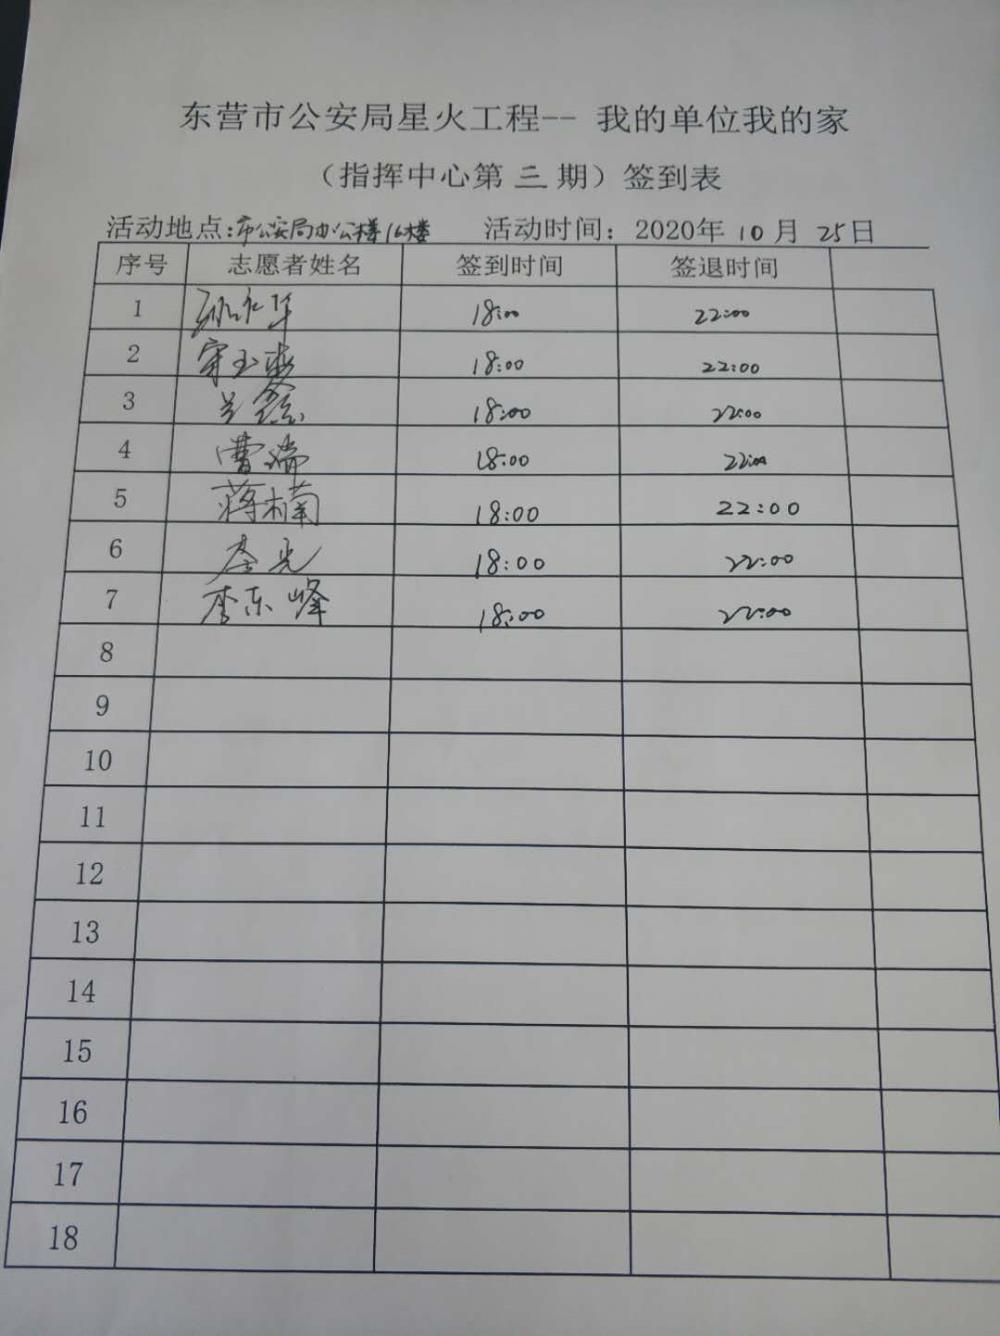 东营市公安局星火工程-- 我的单位我的家
（指挥中心第 三 期）签到表
活动地点:市公安局办公楼16楼 活动时间：2020年 10 月 25日
序号 志愿者姓名 签到时间 签退时间
1 永华 18:00 22:00
2 宋玉 18:00 22:00
3 鑫 18:00 22:00
4 曹瑞 18:00 22:00
5 蒋楠 18:00 22:00
6 18:00 22:00
7 李东峰 18:00 22:00
8
9
10
11
12
13
14
15
16
17
18